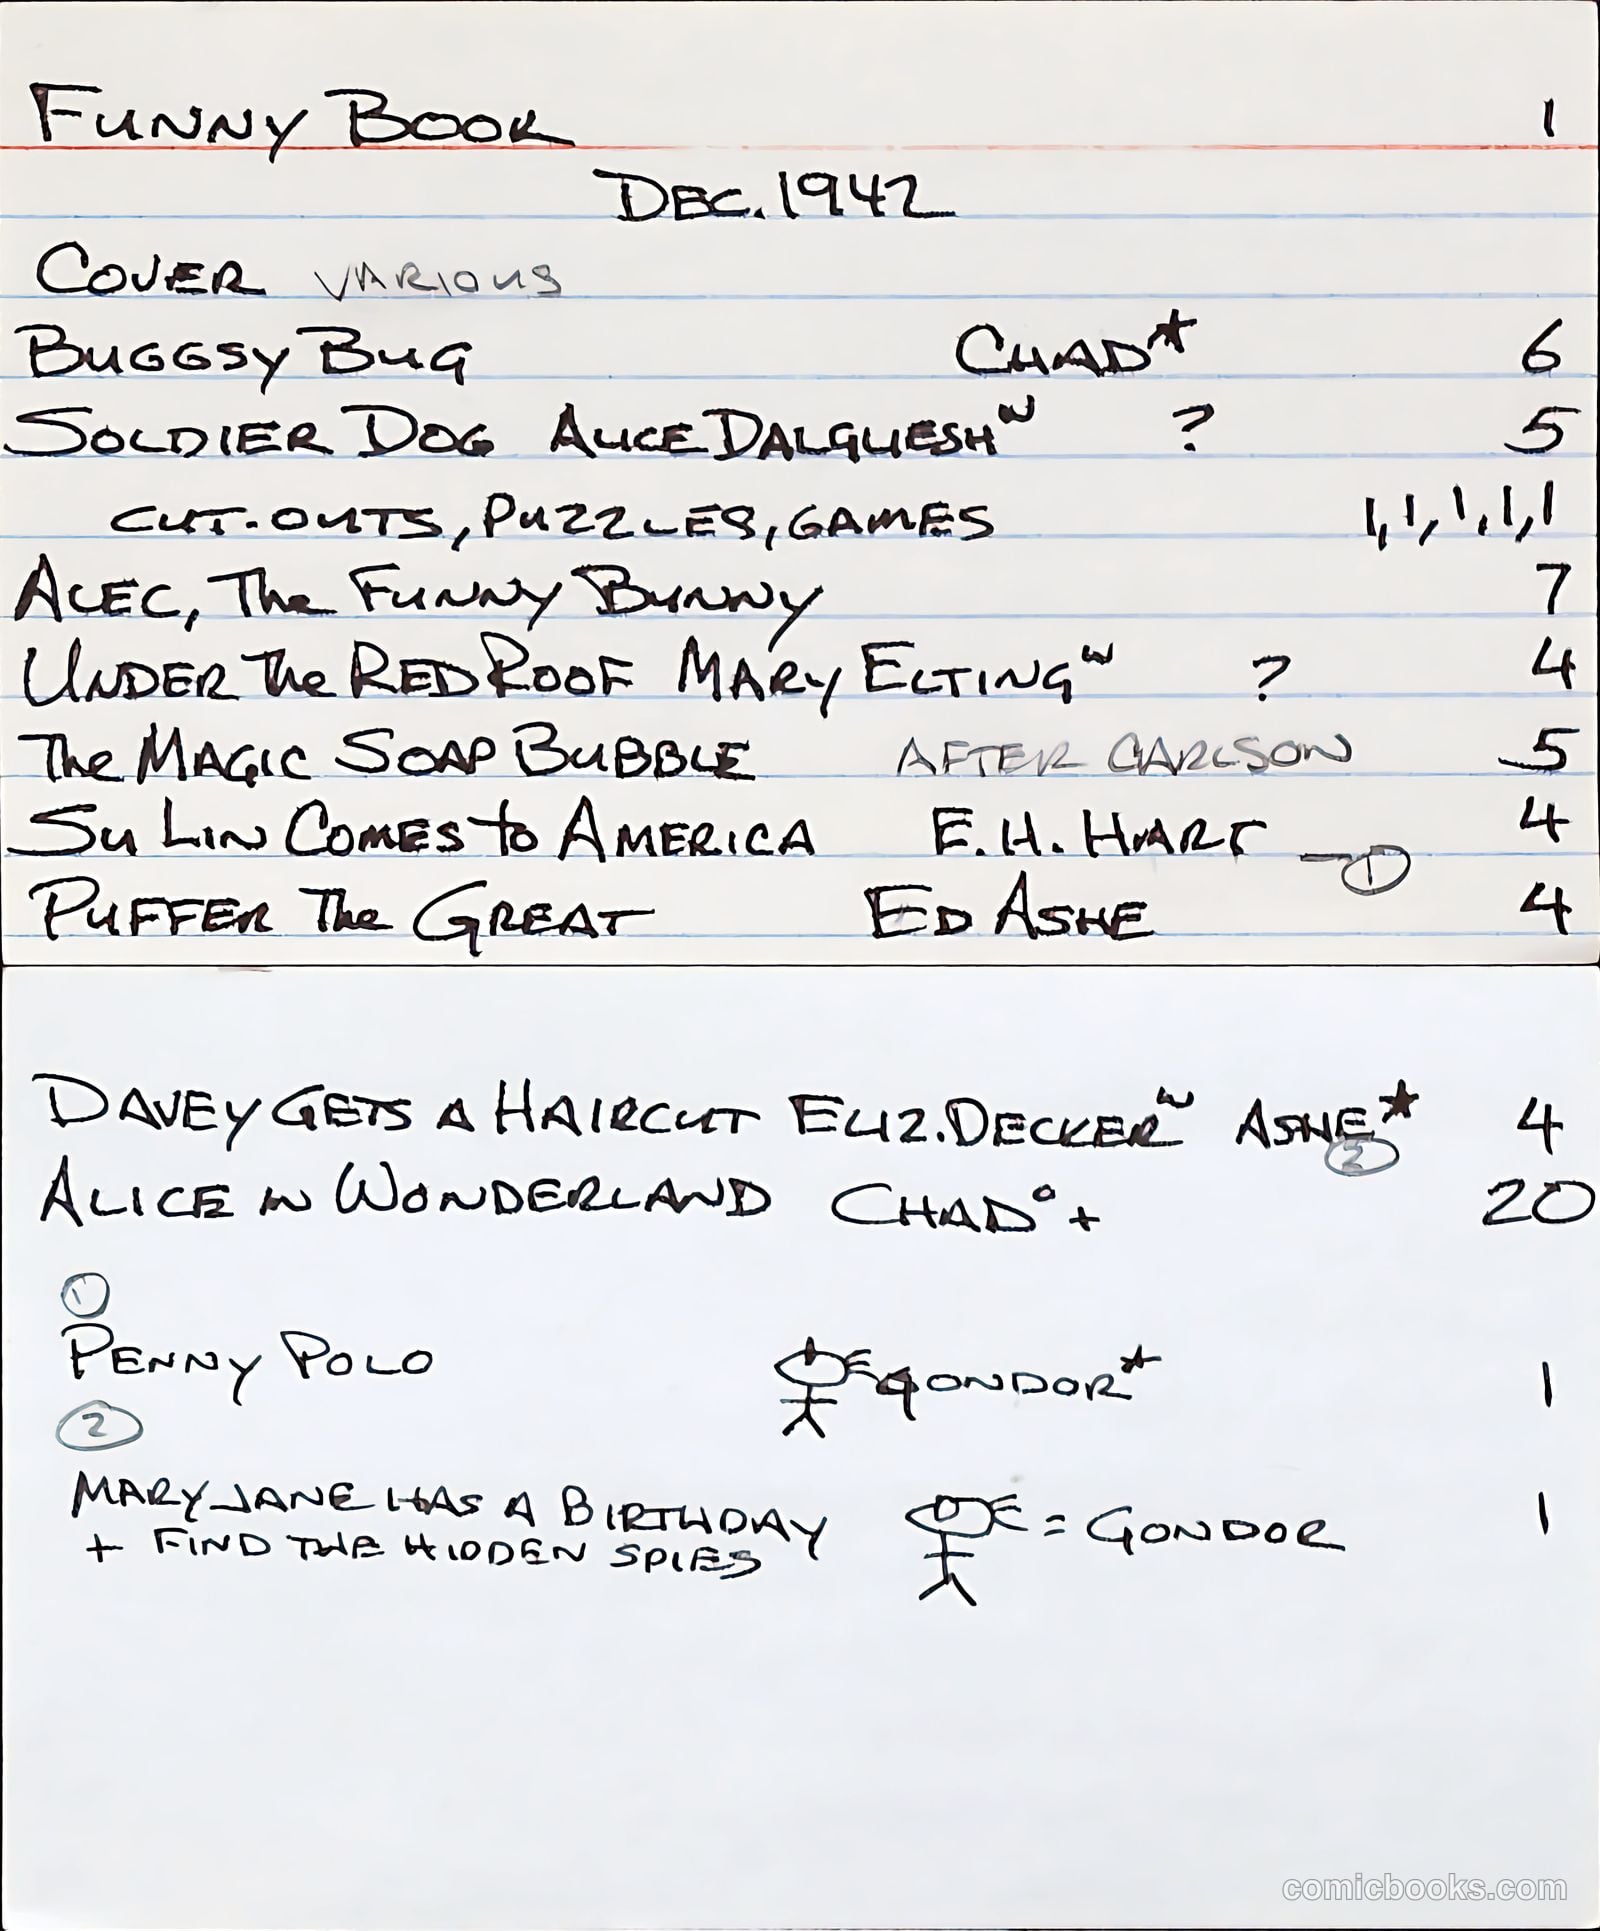 FUNNY BOOK 1
DEC. 1942
COVER VARIOUS
BUGGSY BUG CHAD★ 6
SOLDIER DOG ALICE DALGLIESH W ? 5
CUT-OUTS, PUZZLES, GAMES 1, 1, 1, 1, 1
ALEC, The FUNNY BUNNY 7
UNDER The RED ROOF MARY ELTING W ? 4
The MAGIC SOAP BUBBLE AFTER CARLSON 5
SU LIN COMES to AMERICA E.H. HART — ① 4
PUFFER The GREAT ED ASHE 4
DAVEY GETS A HAIRCUT ELIZ. DECKER W ASHE★ ② 4
ALICE IN WONDERLAND CHAD° + 20
①
PENNY POLO GONDOR★ 1
②
MARY JANE HAS A BIRTHDAY = GONDOR 1
+ FIND THE HIDDEN SPIES
comicbooks.com